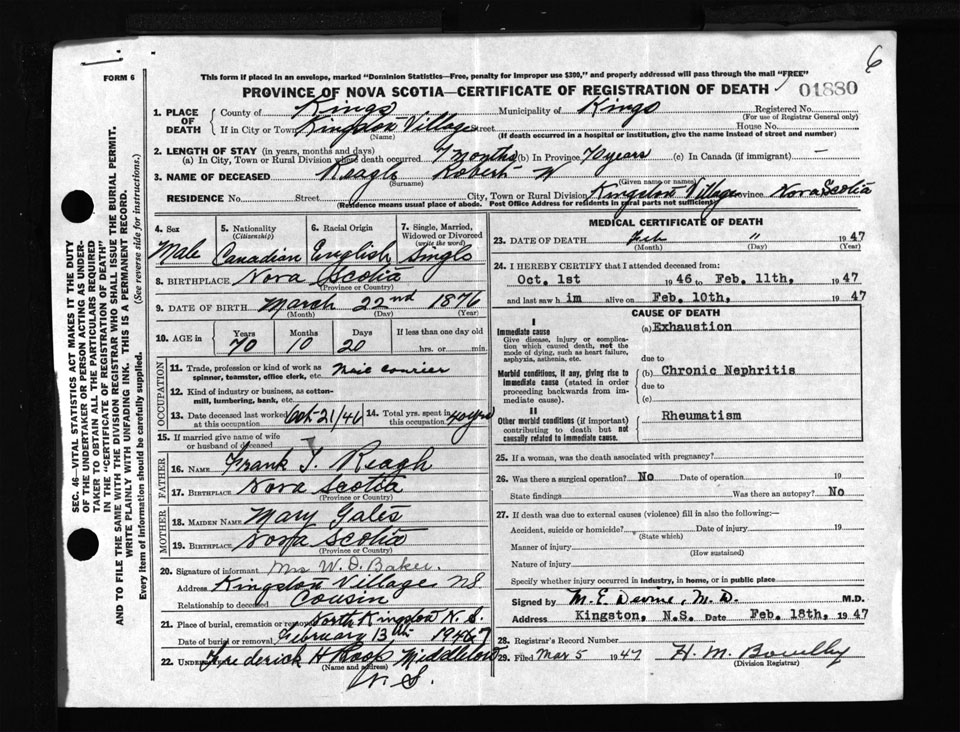 6
FORM 6
This form if placed in an envelope, marked "Dominion Statistics—Free, penalty for improper use $300," and properly addressed will pass through the mail "FREE"
PROVINCE OF NOVA SCOTIA—CERTIFICATE OF REGISTRATION OF DEATH 01880
1. PLACE OF DEATH County of Kings Municipality of Kings Registered No.
(For use of Registrar General only)
If in City or Town Kingston Village Street House No.
(Name) (If death occurred in a hospital or institution, give the name instead of street and number)
2. LENGTH OF STAY (in years, months and days)
(a) In City, Town or Rural Division where death occurred 7 months (b) In Province 70 years (c) In Canada (if immigrant) —
3. NAME OF DECEASED Reagh Robert W
(Surname) (Given name or names)
RESIDENCE No. Street City, Town or Rural Division Kingston Village Province Nova Scotia
(Residence means usual place of abode. Post Office Address for residents in rural parts not sufficient)
4. Sex Male
5. Nationality (Citizenship) Canadian
6. Racial Origin English
7. Single, Married, Widowed or Divorced (write the word) Single
8. BIRTHPLACE Nova Scotia
(Province or Country)
9. DATE OF BIRTH March 22nd 1876
(Month) (Day) (Year)
10. AGE in Years 70 Months 10 Days 20 If less than one day old hrs. or min.
OCCUPATION
11. Trade, profession or kind of work as spinner, teamster, office clerk, etc. Mail courier
12. Kind of industry or business, as cotton-mill, lumbering, bank, etc.
13. Date deceased last worked at this occupation Oct 21/46 14. Total yrs. spent in this occupation 40 yrs
15. If married give name of wife or husband of deceased
FATHER
16. NAME Frank T. Reagh
17. BIRTHPLACE Nova Scotia
(Province or Country)
MOTHER
18. MAIDEN NAME Mary Gates
19. BIRTHPLACE Nova Scotia
(Province or Country)
20. Signature of informant Mrs W. D. Baker.
Address Kingston Village N.S.
Relationship to deceased Cousin
21. Place of burial, cremation or removal North Kingston N. S.
Date of burial or removal February 13th 1947
22. UNDERTAKER Frederick H Roop Middleton
(Name and address)
N. S.
MEDICAL CERTIFICATE OF DEATH
23. DATE OF DEATH Feb 11 1947
(Month) (Day) (Year)
24. I HEREBY CERTIFY that I attended deceased from:
Oct. 1st 1946 to Feb. 11th, 1947
and last saw him alive on Feb. 10th, 1947
CAUSE OF DEATH
I
Immediate cause (a) Exhaustion
Give disease, injury or complication which caused death, not the mode of dying, such as heart failure, asphyxia, asthenia, etc.
due to
Morbid conditions, if any, giving rise to immediate cause (stated in order proceeding backwards from immediate cause). (b) Chronic Nephritis
due to
(c)
II
Other morbid conditions (if important) contributing to death but not causally related to immediate cause. Rheumatism
25. If a woman, was the death associated with pregnancy?
26. Was there a surgical operation? No Date of operation 19
State findings Was there an autopsy? No
27. If death was due to external causes (violence) fill in also the following:—
Accident, suicide or homicide? Date of injury 19
(State which)
Manner of injury
(How sustained)
Nature of injury
Specify whether injury occurred in industry, in home, or in public place
Signed by M. E. M. D. M.D.
Address Kingston, N.S. Date Feb. 18th, 1947
28. Registrar's Record Number
29. Filed Mar 5 1947 H. M.
(Division Registrar)
SEC. 46—VITAL STATISTICS ACT MAKES IT THE DUTY
OF THE UNDERTAKER OR PERSON ACTING AS UNDER-
TAKER TO OBTAIN ALL THE PARTICULARS REQUIRED
IN THE "CERTIFICATE OF REGISTRATION OF DEATH"
AND TO FILE THE SAME WITH THE DIVISION REGISTRAR WHO SHALL ISSUE THE BURIAL PERMIT.
WRITE PLAINLY WITH UNFADING INK. THIS IS A PERMANENT RECORD.
Every item of information should be carefully supplied. (See reverse side for instructions.)